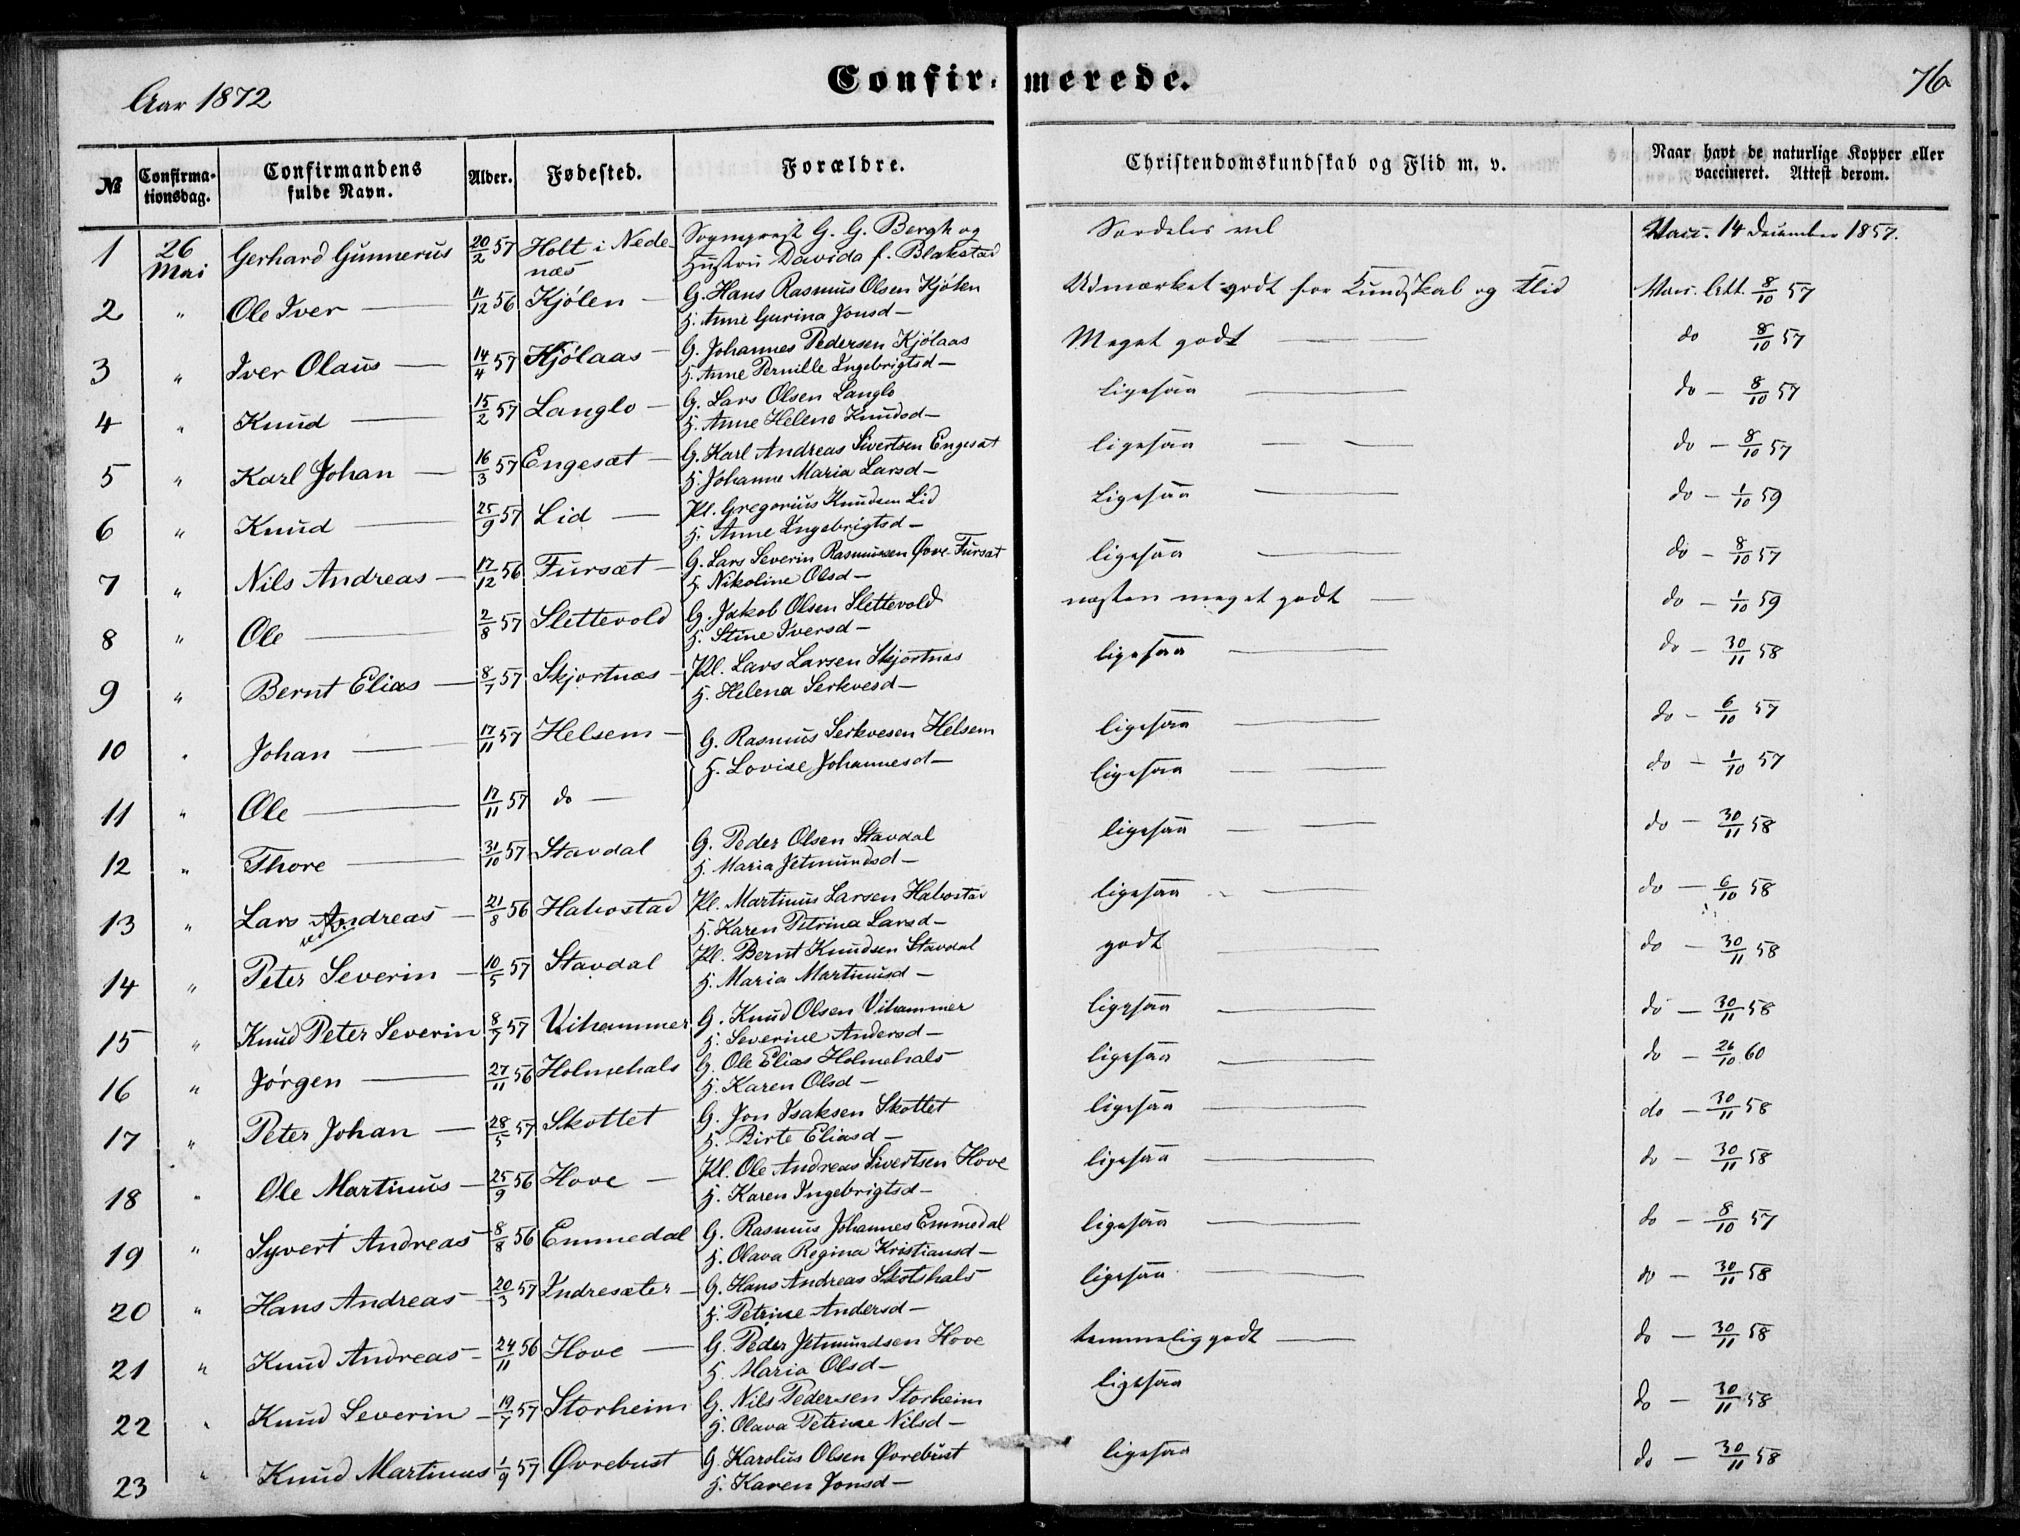 Aar 1872
Confirmerede.
76
№
Confirmationsdag.
Confirmandens fulde Navn.
Alder.
Fødested.
Forældre.
Christendomskundskab og Flid m. v.
Naar havt de naturlige Kopper eller vaccineret. Attest derom.
1 26 Mai Gerhard Gunnerus 20/2 57 Holt i Nedenæs Sognepræst G. G. Bergh og Hustru Davida f. Blakstad Særdeles vel Vacc. 14 December 1857.
2 " Ole Iver — 11/12 56 Kjölen — G. Hans Rasmus Olsen Kjölen H. Anne Gurina Jonsd — Udmærket godt for Kundskab og Flid Vacc. Att. 8/10 57
3 " Iver Olaus — 14/4 57 Kjölaas — G. Johannes Pedersen Kjölaas H. Anne Pernille Ingebrigtsd — Meget godt — do 8/10 57
4 " Knud — 15/2 57 Langlo — G. Lars Olsen Langlo H. Anne Helena Knudsd — ligesaa — do — 8/10 57
5 " Karl Johan — 16/3 57 Engesæt — G. Karl Andreas Sivertsen Engesæt H. Johanne Maria Larsd — ligesaa — do — 8/10 57
6 " Knud — 25/9 57 Lid — Pl. Gregorius Knudsen Lid H. Anne Ingebrigtsd — Ligesaa — do — 1/10 59
7 " Nils Andreas — 17/12 56 Fursæt — G. Lars Severin Rasmussen Øvre-Fursæt H. Nikoline Olsd — ligesaa — do — 8/10 57
8 " Ole — 2/8 57 Slettevold G. Jakob Olsen Slettevold H. Stine Iversd — næsten meget godt — do — 1/10 59
9 " Bernt Elias — 8/7 57 Skjortnæs — Pl. Lars Larsen Skjortnæs H. Helena Serkvesd — ligesaa — do — 30/11 58
10 " Johan — 17/11 57 Helsem — G. Rasmus Serkvesen Helsem H. Lovise Johannesd — ligesaa — do — 6/10 57
11 " Ole — 17/11 57 do — ligesaa — do — 1/10 57
12 " Thore — 31/10 57 Stavdal G. Peder Olsen Stavdal H. Maria Jetmundsd — ligesaa — do — 30/11 58
13 " Lars Andreas — 21/8 56 Habostad Pl. Martinus Larsen Habostad H. Karen Petrina Larsd — ligesaa — do — 6/10 58
14 " Peter Severin — 10/5 57 Stavdal Pl. Bernt Knudsen Stavdal H. Maria Martinusd — godt — do — 30/11 58
15 " Knud Peter Severin 8/7 57 Vihammer G. Knud Olsen Vihammer H. Severine Andersd — ligesaa — do — 30/11 58
16 " Jørgen — 27/11 56 Holmehals G. Ole Elias Holmehals H. Karen Olsd — ligesaa — do — 26/10 60
17 " Peter Johan — 28/5 57 Skottet G. Jon Isaksen Skottet H. Birte Eliasd — ligesaa — do — 30/11 58
18 " Ole Martinus — 25/9 56 Hove — Pl. Ole Andreas Sivertsen Hove H. Karen Ingebrigtsd — ligesaa — do — 30/11 58
19 " Syvert Andreas 8/8 56 Emmedal G. Rasmus Johannes Emmedal H. Olava Regina Kristiansd — ligesaa — do — 8/10 57
20 " Hans Andreas — 20/3 57 Indresæter — G. Hans Andreas Skotshals H. Petrine Andersd — ligesaa — do — 30/11 58
21 " Knud Andreas — 24/11 56 Hove — G. Peder Jetmundsen Hove H. Maria Olsd — temmelig godt — do — 30/11 58
22 " Knud Severin — 19/7 57 Storheim G. Nils Pedersen Storheim H. Olava Petrine Nilsd — ligesaa do — 30/11 58
23 " Knud Martinus 1/9 57 Øvrebust G. Karolus Olsen Øvrebust H. Karen Jonsd — ligesaa do — 30/11 58